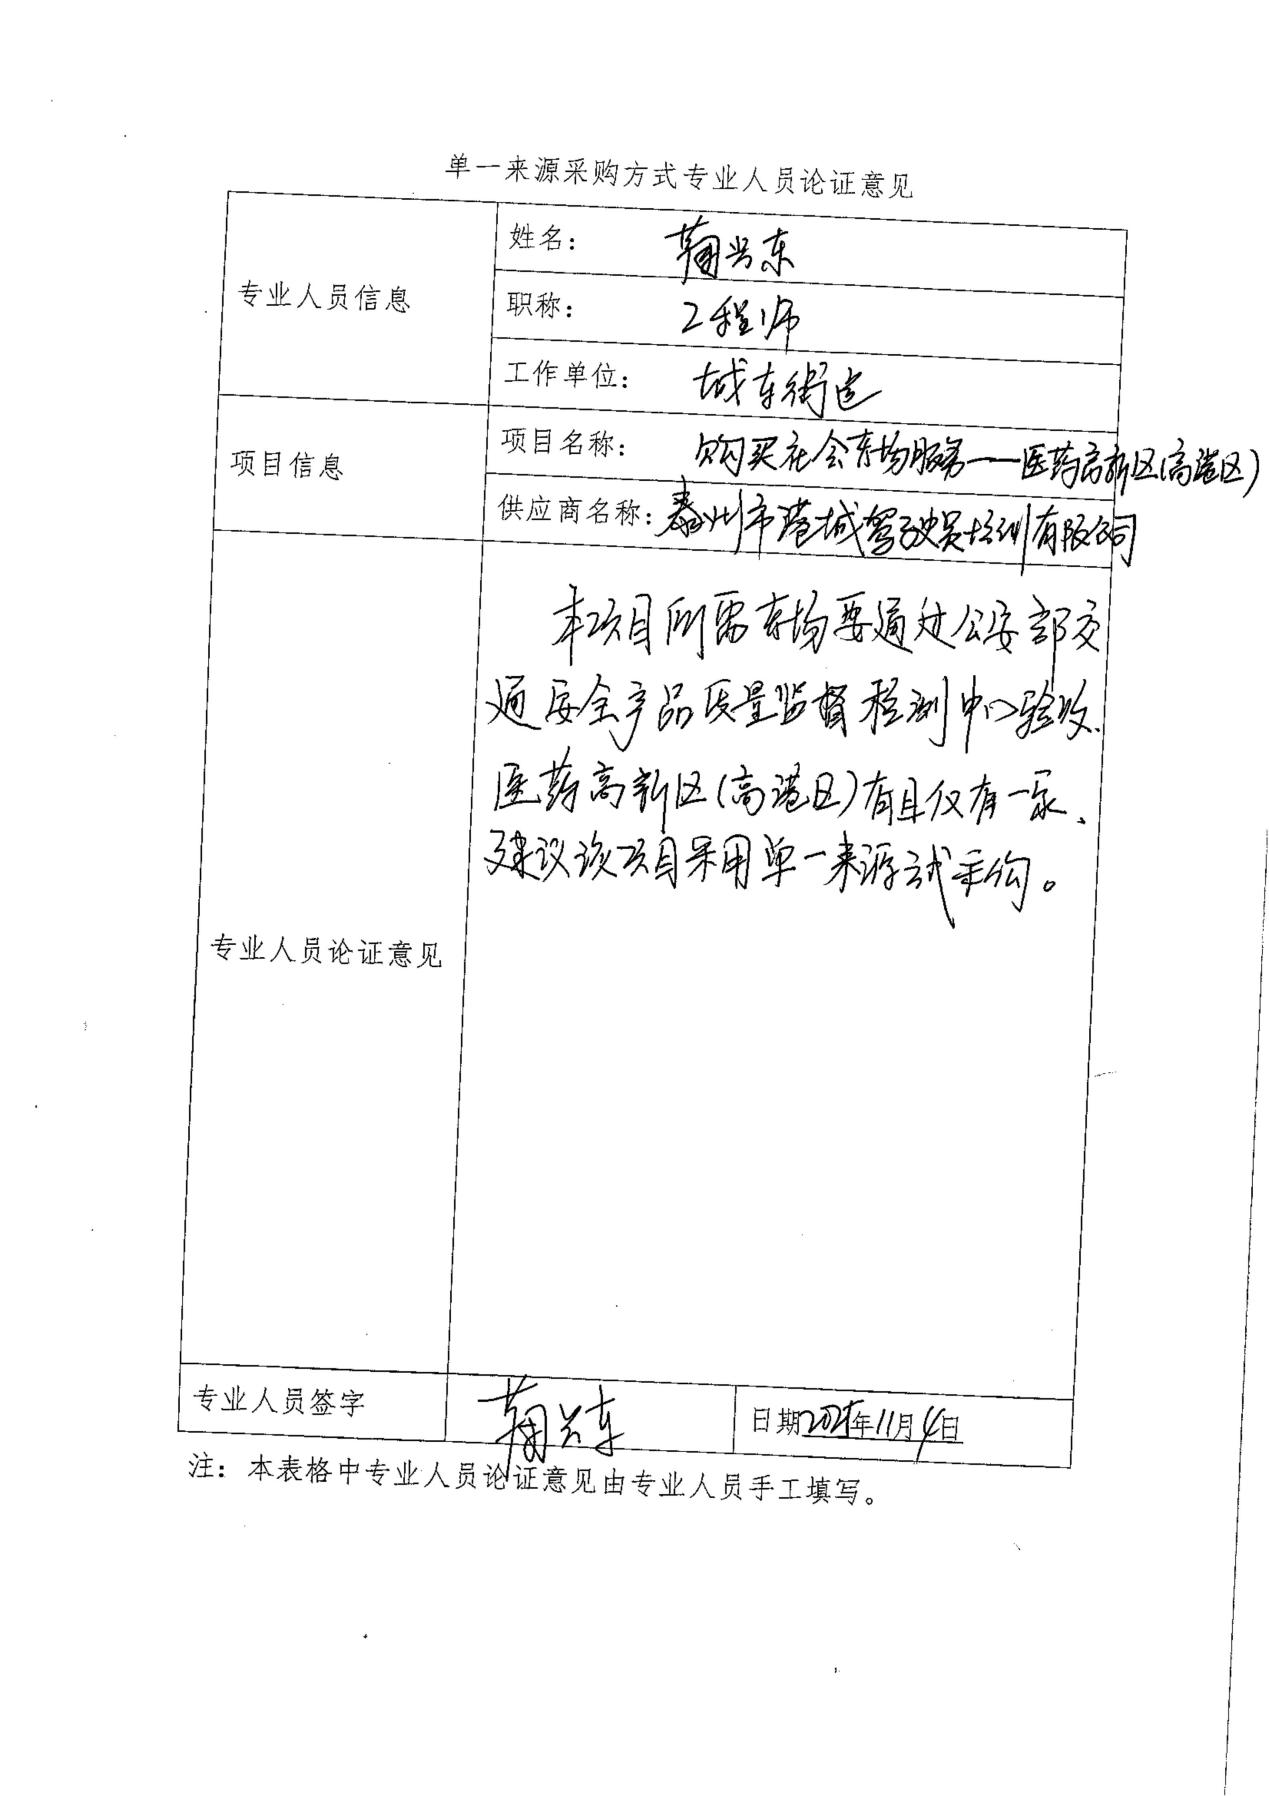 单一来源采购方式专业人员论证意见
专业人员信息
姓名： 鞠兴东
职称： 工程师
工作单位： 城东街道
项目信息
项目名称： 购买社会考场服务——医药高新区(高港区)
供应商名称：泰州市港城驾驶员培训有限公司
专业人员论证意见
本项目所需考场要通过公安部交
通安全产品质量监督检测中心验收、
医药高新区(高港区)有且仅有一家、
建议该项目采用单一来源式采购。
专业人员签字
鞠兴东
日期2025年11月4日
注：本表格中专业人员论证意见由专业人员手工填写。